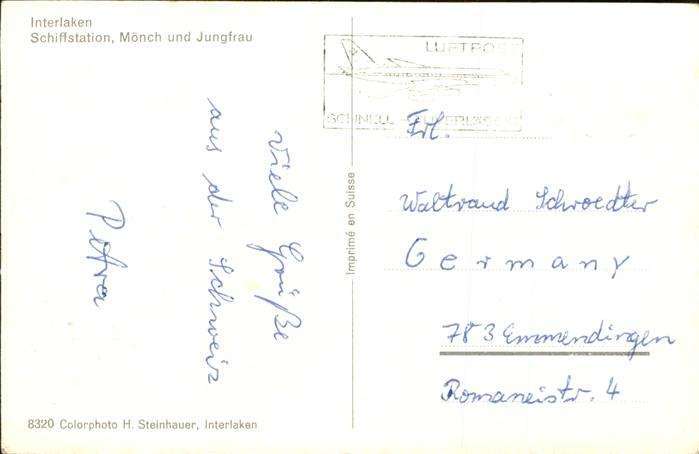 Interlaken
Schiffstation, Mönch und Jungfrau
LUFTPOST
SCHNELL
Viele Grüße
aus der Schweiz
Petra
Imprimé en Suisse
Frl.
Waltraud Schroedter
Germany
783 Emmendingen
Romaneistr. 4
8320 Colorphoto H. Steinhauer, Interlaken